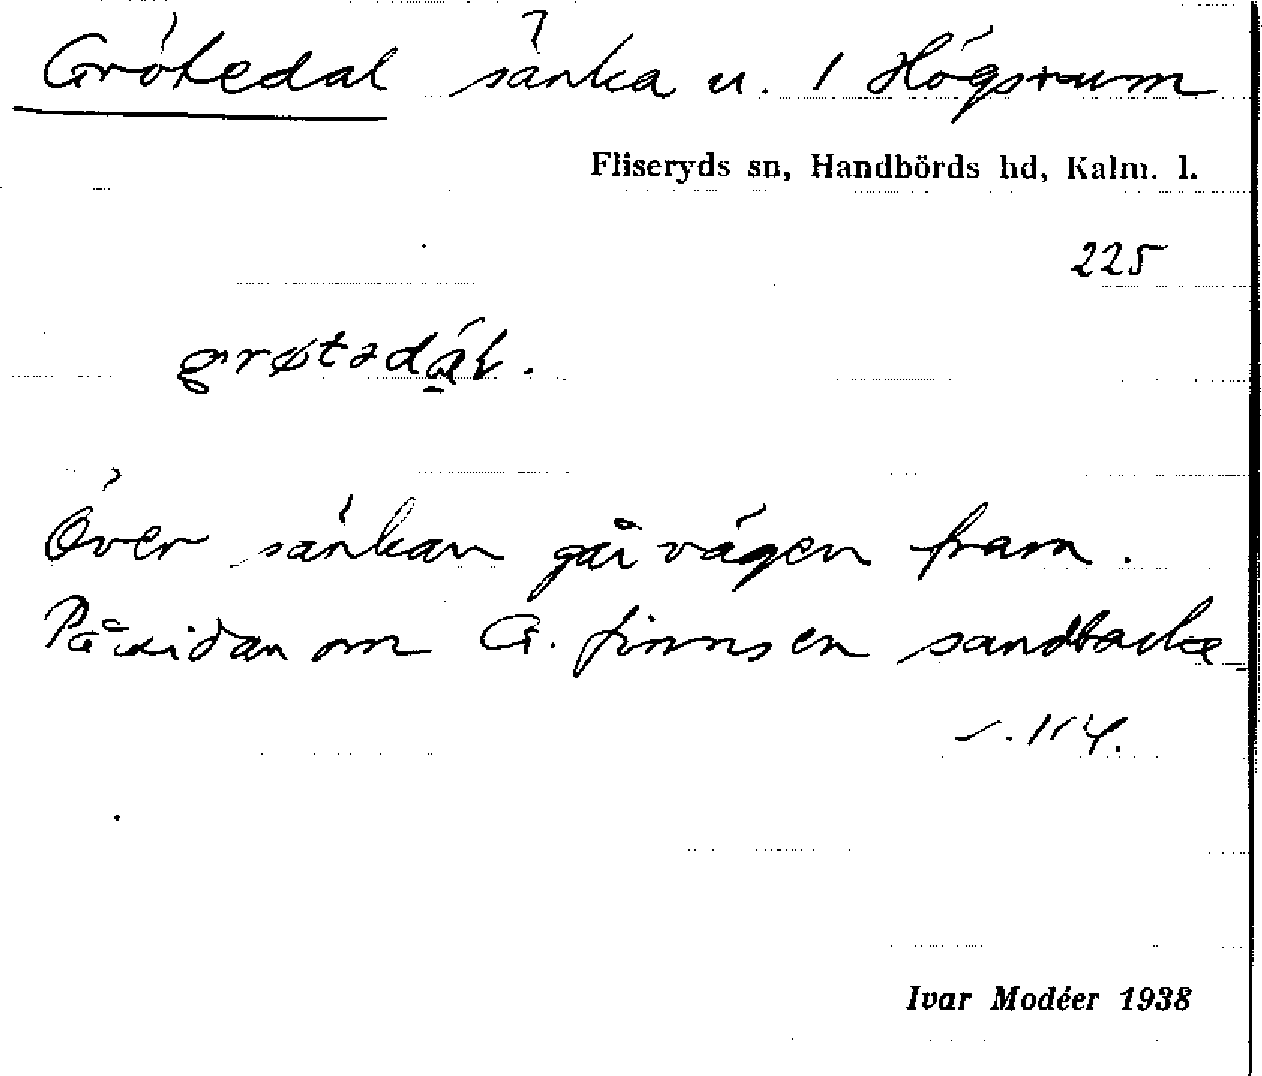 Grötedal sänka u. 1 Högsrum
Fliseryds sn, Handbörds hd, Kalm. l.
225
grøtədạ́l.
Över sänkan går vägen fram.
På sidan om G. finns en sandbacke
s. 114.
Ivar Modéer 1938